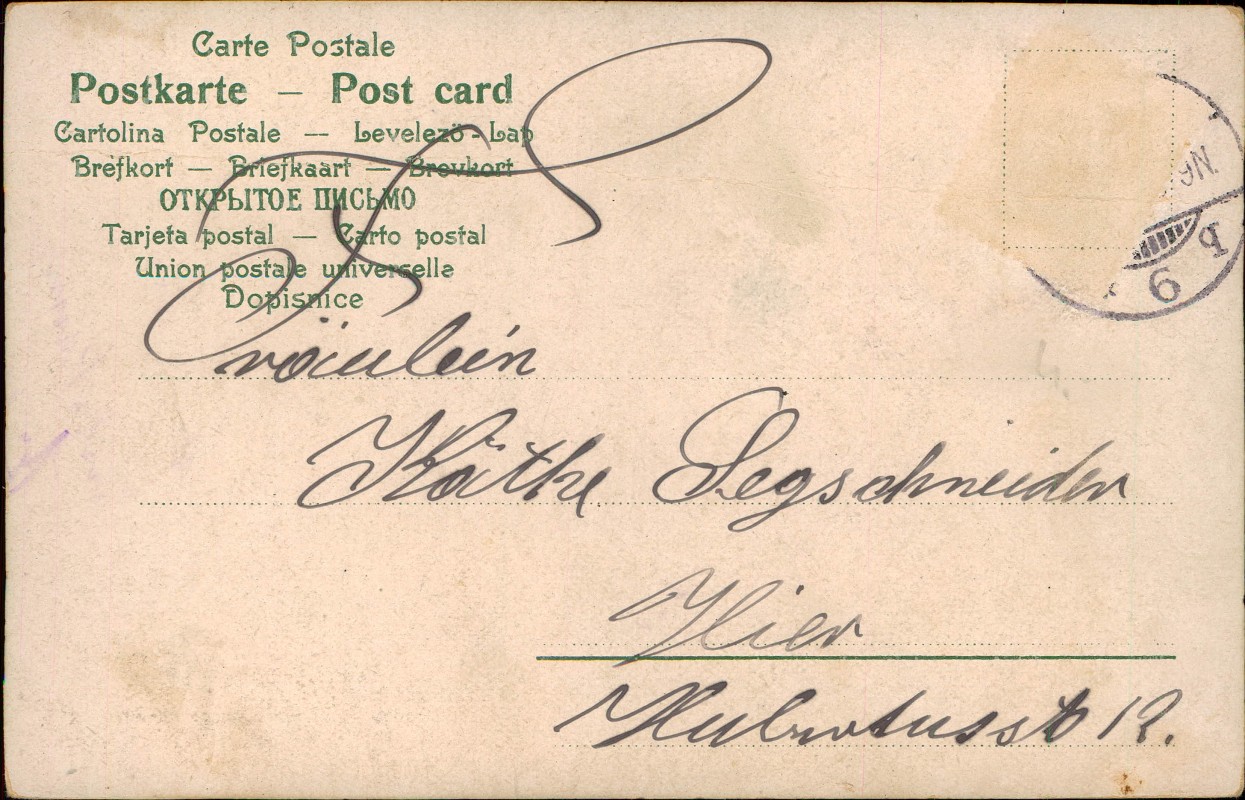 Carte Postale
Postkarte — Post card
Cartolina Postale — Levelező-Lap
Brefkort — Briefkaart — Brevkort
ОТКРЫТОЕ ПИСЬМО
Tarjeta postal — Carto postal
Union postale universelle
Dopisnice
Fräulein
Käthe Segschneider
Hier
Hubertusstr 12.